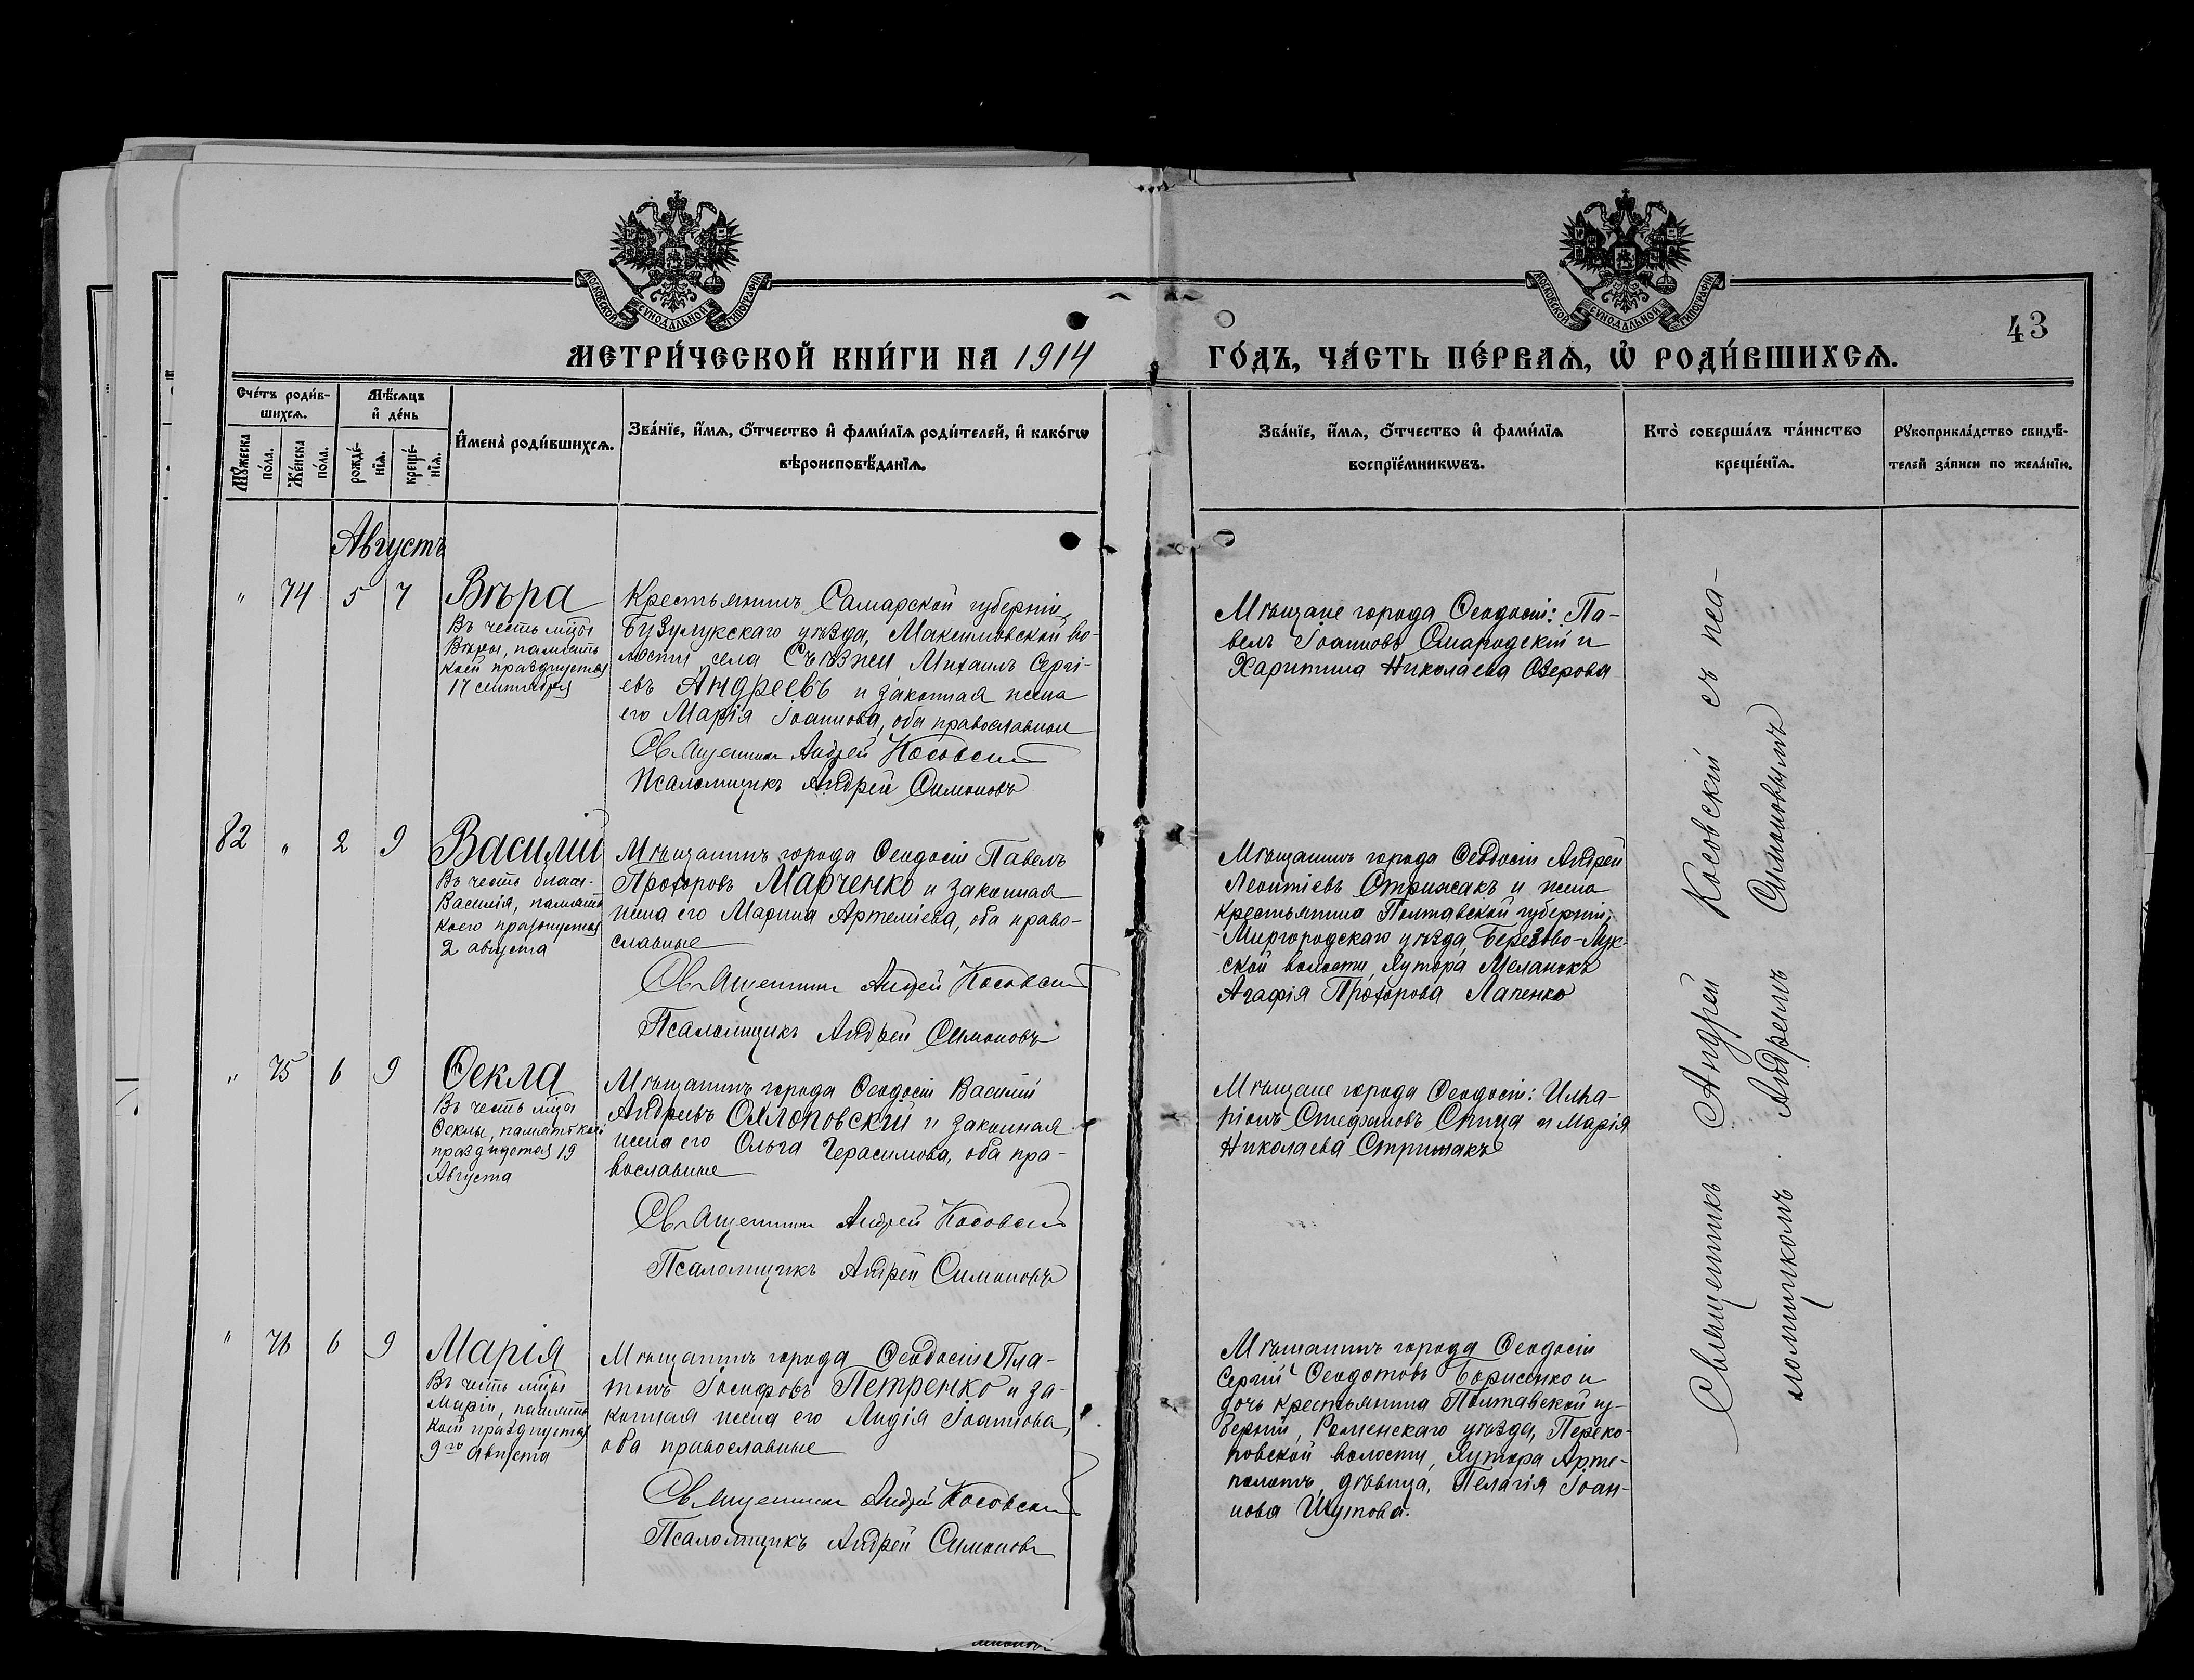 МОСКОВСКОЙ СѴНОДАЛЬНОЙ ТИПОГРАФІИ
МОСКОВСКОЙ СѴНОДАЛЬНОЙ ТИПОГРАФІИ
43
МЕТРИ́ЧЕСКОЙ КНИ́ГИ НА 1914
ГО́ДЪ, ЧА́СТЬ ПЕ́РВАѦ, Ѡ҆ РОДИ́ВШИХСѦ.
Сче́тъ роди́в-
шихсѧ.
Мꙋ́жеска
по́ла.
Же́нска
по́ла.
Мѣ́сѧцъ
и҆ де́нь
рожде́-
нїѧ.
креще́-
нїѧ.
И҆мена̀ роди́вшихсѧ.
Зва́нїе, и҆́мѧ, ѻ҆́тчество и҆ фами́лїѧ роди́телей, и҆ како́гѡ
вѣроисповѣ́данїѧ.
Зва́нїе, и҆́мѧ, ѻ҆́тчество и҆ фами́лїѧ
воспрїе́мникѡвъ.
Кто̀ соверша́лъ та́инство
креще́нїѧ.
Рꙋкоприкла́дство свидѣ́-
телей за́писи по жела́нїю.
Августъ
" 74 5 7
Вѣра
Въ честь мцы
Вѣры, память
коей празднуется
17 сентября
Крестьянинъ Самарской губерніи,
Бузулукскаго уѣзда, Максимовской во-
лости, села Съѣзжей Михаилъ Сергі-
евъ Андреевъ и законная жена
его Марія Іоаннова, оба православные
Священникъ Андрей Косовскій
Псаломщикъ Андрей Симоновъ
Мѣщане города Ѳеодосіи: Па-
велъ Іоанновъ Смародскій и
Харитина Николаева Озерова
82 " 2 9
Василій
Въ честь блаж.
Василія, память
коего празднуется
2 августа
Мѣщанинъ города Ѳеодосіи Павелъ
Прохоровъ Марченко и законная
жена его Марина Артеміева, оба право-
славные
Священникъ Андрей Косовскій
Псаломщикъ Андрей Симоновъ
Мѣщанинъ города Ѳеодосіи Андрей
Леонтіевъ Стрижакъ и жена
крестьянина Полтавской губерніи,
Миргородскаго уѣзда, Березово-Лук-
ской волости, хутора Меланокъ
Агафія Прохорова Лапенко
" 75 6 9
Ѳекла
Въ честь мцы
Ѳеклы, память коей
празднуется 19
Августа
Мѣщанинъ города Ѳеодосіи Василій
Андреевъ Охлоповскій и законная
жена его Ольга Герасимова, оба пра-
вославные
Священникъ Андрей Косовскій
Псаломщикъ Андрей Симоновъ
Мѣщане города Ѳеодосіи: Илла-
ріонъ Стефановъ Спица и Марія
Николаева Стрижакъ
" 76 6 9
Марія
Въ честь мцы
Маріи, память
коей празднуется
9го Августа
Мѣщанинъ города Ѳеодосіи Пла-
тонъ Іосифовъ Петренко и за-
конная жена его Лидія Іоаннова,
оба православные
Священникъ Андрей Косовскій
Псаломщикъ Андрей Симоновъ
Мѣщанинъ города Ѳеодосіи
Сергій Ѳеодотовъ Борисенко и
дочь крестьянина Полтавской гу-
берніи, Роменскаго уѣзда, Переко-
повской волости, хутора Арте-
полотъ, дѣвица, Пелагія Іоан-
нова Шутова.
Священникъ Андрей Косовскій съ пса-
ломщикомъ Андреемъ Симоновымъ